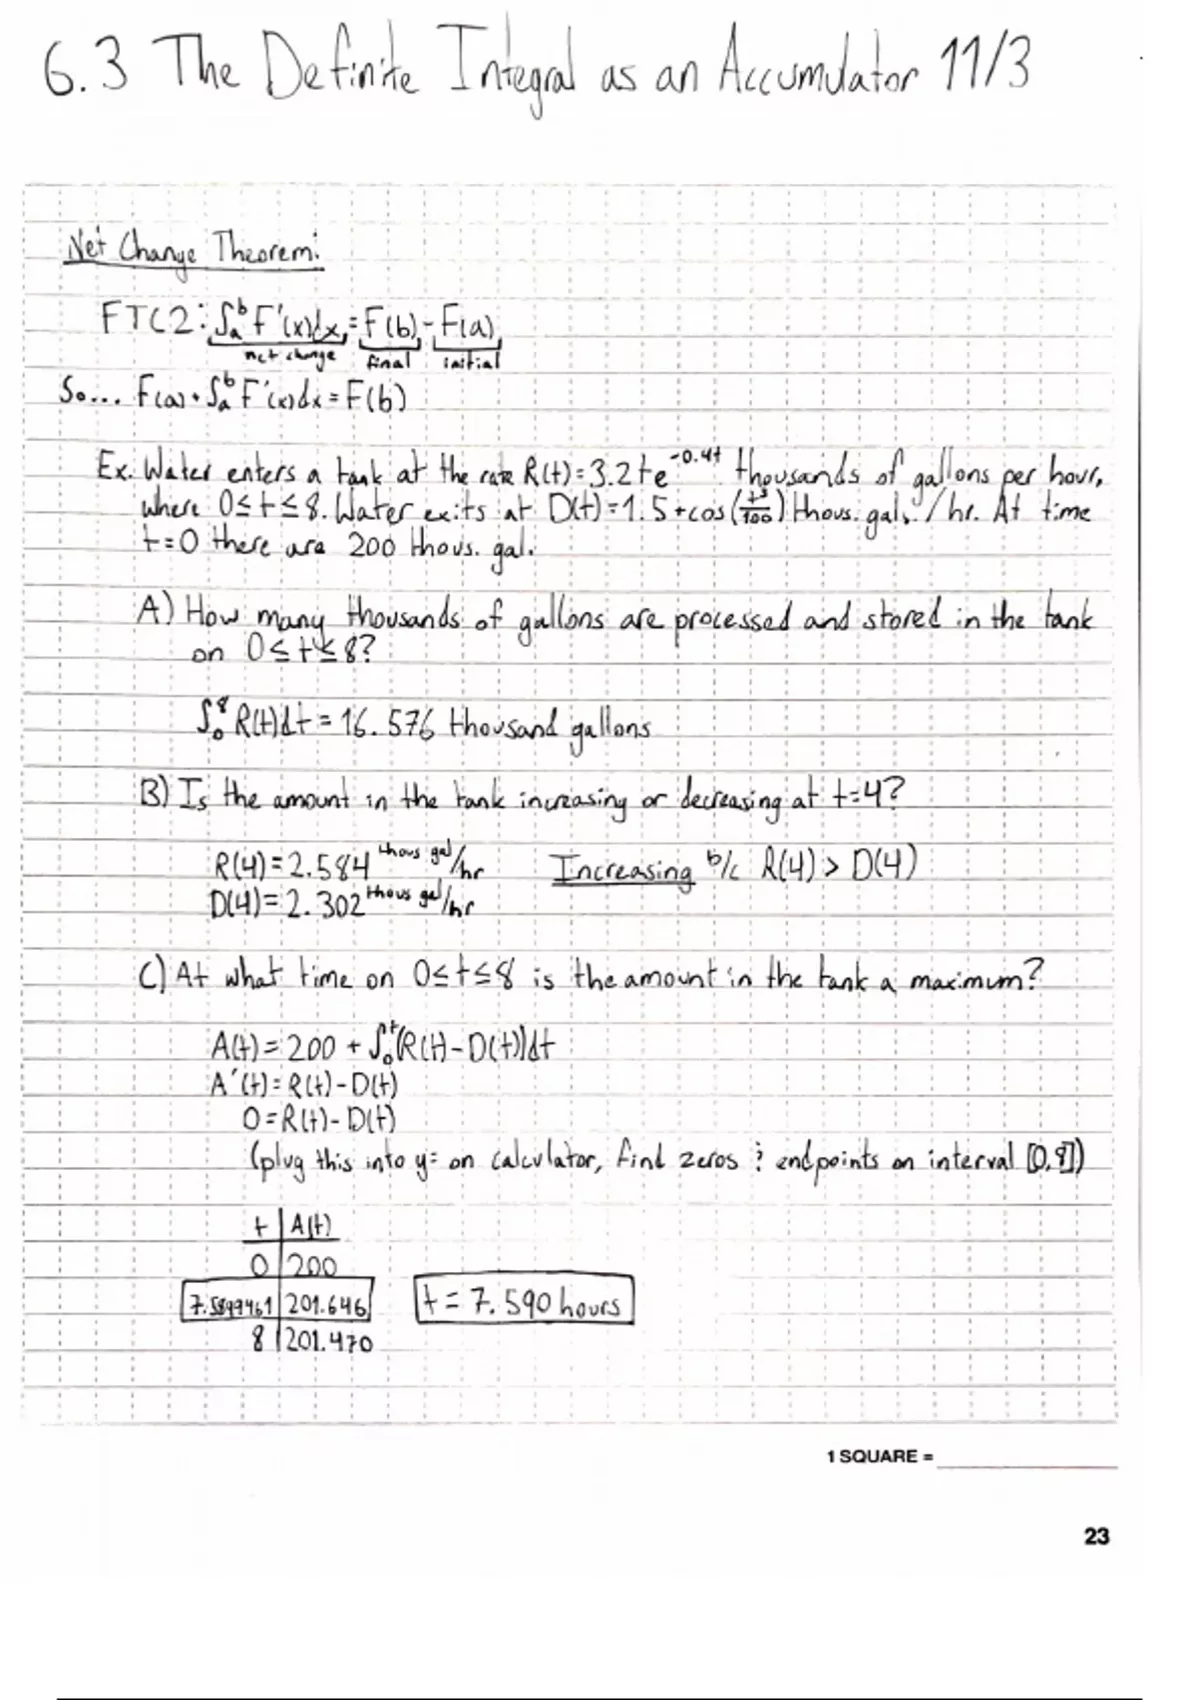 6.3 The Definite Integral as an Accumulator 11/3
Net Change Theorem:
FTC2: ∫ₐᵇ F'(x)dx = F(b) - F(a)
net change final initial
So... F(a) + ∫ₐᵇ F'(x)dx = F(b)
Ex. Water enters a tank at the rate R(t)=3.2te^-0.4t thousands of gallons per hour,
where 0≤t≤8. Water exits at D(t)=1.5+cos(t³/100) thous. gal./hr. At time
t=0 there are 200 thous. gal.
A) How many thousands of gallons are processed and stored in the tank
on 0≤t≤8?
∫₀⁸ R(t)dt = 16.576 thousand gallons
B) Is the amount in the tank increasing or decreasing at t=4?
R(4)=2.584 thous gal/hr Increasing b/c R(4) > D(4)
D(4)=2.302 thous gal/hr
C) At what time on 0≤t≤8 is the amount in the tank a maximum?
A(t)=200 + ∫₀ᵗ(R(t)-D(t))dt
A'(t)=R(t)-D(t)
0=R(t)-D(t)
(plug this into y= on calculator, find zeros & endpoints on interval [0,8])
t A(t)
0 200
7.5899461 201.646 t = 7.590 hours
8 201.470
1 SQUARE =
23